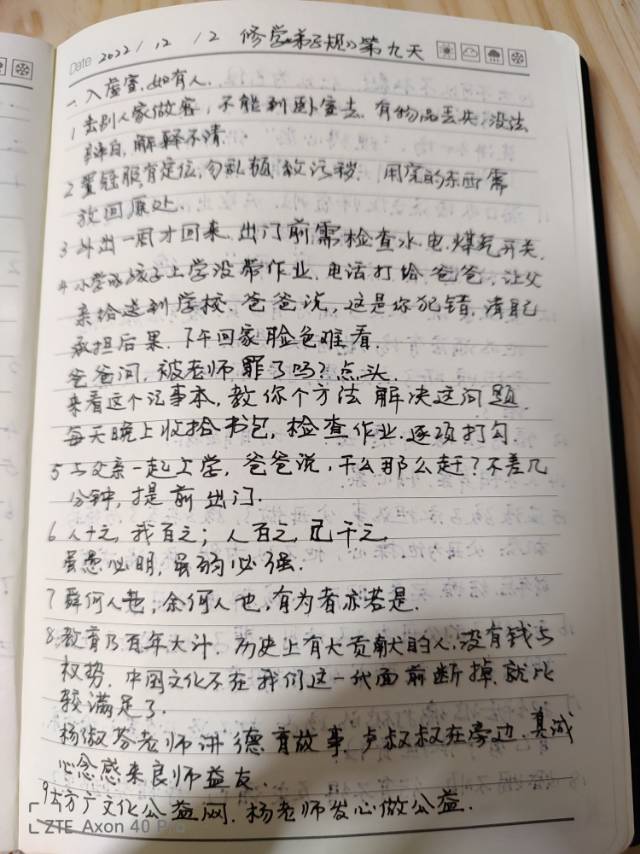 Date 2022/12/12 修学《弟子规》第九天
一、入虚室,如有人.
1 去别人家做客,不能到卧室去.有物品丢失,没法
自,解释不清.
2 置冠服,有定位,勿乱顿,致污秽.用完的东西需
放回原处.
3 外出一周才回来,出门前需检查水、电、煤气开关.
4 小学的孩子上学没带作业,电话打给爸爸,让父
亲给送到学校,爸爸说,这是你犯错,请自己
承担后果,下午回家脸色难看.
爸爸问,被老师罪了吗?点头.
来看这个记事本,教你个方法解决这问题.
每天晚上收拾书包,检查作业.逐项打勾.
5 与父亲一起上学,爸爸说,干么那么赶?不差几
分钟,提前出门.
6 人十之,我百之;人百之,己千之.
虽愚必明,虽弱必强.
7 舜何人也;余何人也,有为者亦若是.
8.教育乃百年大计.历史上有大贡献的人,没有钱与
权势.中国文化不在我们这一代面前断掉,就比
较满足了.
杨淑芬老师讲德育故事.卢叔叔在旁边.真诚
心念感来良师益友.
9 大方广文化公益网.杨老师发心做公益.
ZTE Axon 40 Pro